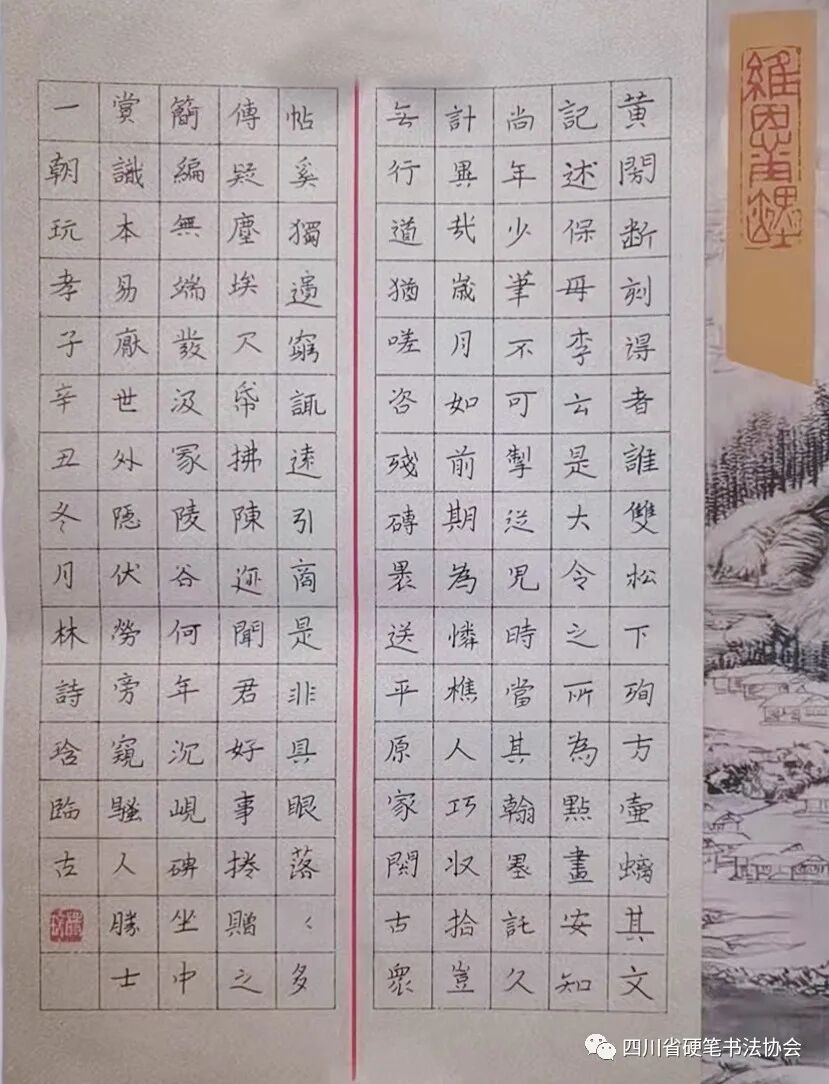 黄閍断刻得者誰雙松下殉方壷螭其文
記述保母李云是大令之所為點畫安知
尚年少筆不可掣従兒時當其翰墨託久
計異哉歲月如前期為憐樵人巧収拾豈
無行道猶嗟咨殘磚褁送平原家閱古衆
帖奚獨遺窮諏遠引商是非具眼落〻多
傳疑塵埃帚拂陳迹聞君好事捲贈之
簡編無端發汲冢陵谷何年沉峴碑坐中
賞識本易厭世外隱伏勞旁窺騷人勝士
一朝玩孝子辛丑冬月林詩琀臨古
四川省硬笔书法协会